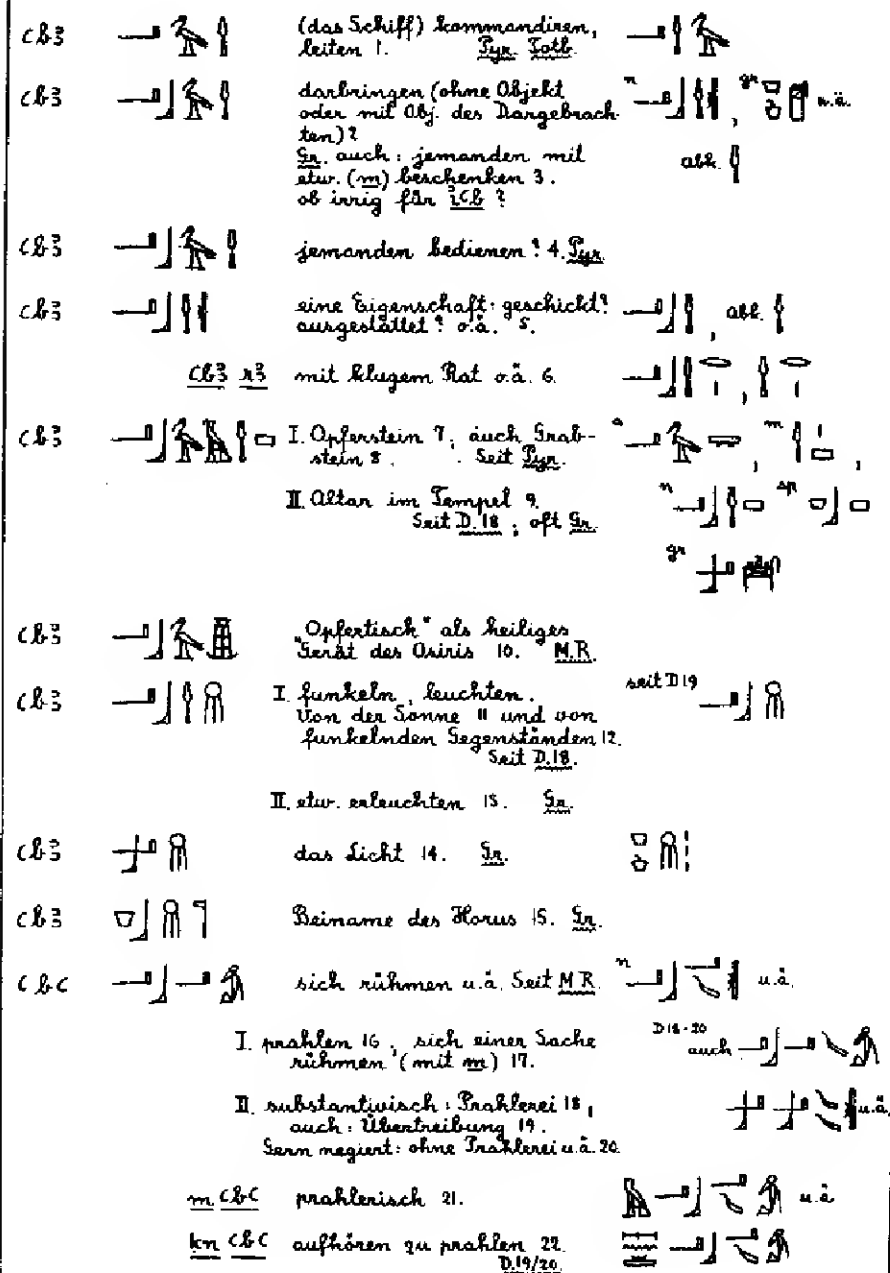 ꜥbꜣ (das Schiff) kommandiren,
leiten 1. Pyr. Totb.
ꜥbꜣ darbringen (ohne Objekt n , gr u.ä.
oder mit Obj. des Dargebrach-
ten) 2
Gr. auch: jemanden mit abk.
etw. (m) beschenken 3.
ob irrig für iꜥb ?
ꜥbꜣ jemanden bedienen? 4. Pyr.
ꜥbꜣ eine Eigenschaft: geschickt? , abk.
ausgestattet? o.ä. 5.
ꜥbꜣ rꜣ mit klugem Rat o.ä. 6. ,
ꜥbꜣ I. Opferstein 7; auch Grab- a , m ,
stein 8. Seit Pyr.
II. Altar im Tempel 9. n sp
Seit D.18; oft Gr.
gr
ꜥbꜣ "Opfertisch" als heiliges
Gerät des Osiris 10. M.R.
ꜥbꜣ I. funkeln, leuchten. seit D19
Von der Sonne 11 und von
funkelnden Gegenständen 12.
Seit D.18.
II. etw. erleuchten 13. Gr.
ꜥbꜣ das Licht 14. Gr.
ꜥbꜣ Beiname des Horus 15. Gr.
ꜥbꜥ sich rühmen u.ä. Seit MR. n u.ä.
I. prahlen 16, sich einer Sache D18-20
rühmen (mit m) 17. auch
II. substantivisch: Prahlerei 18, u.ä.
auch: Übertreibung 19.
Gern negiert: ohne Prahlerei u.ä. 20.
m ꜥbꜥ prahlerisch 21. u.ä
kn ꜥbꜥ aufhören zu prahlen 22.
D.19/20.